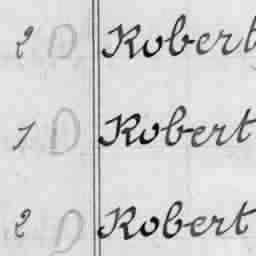 2 D Robert
1 D Robert
2 D Robert